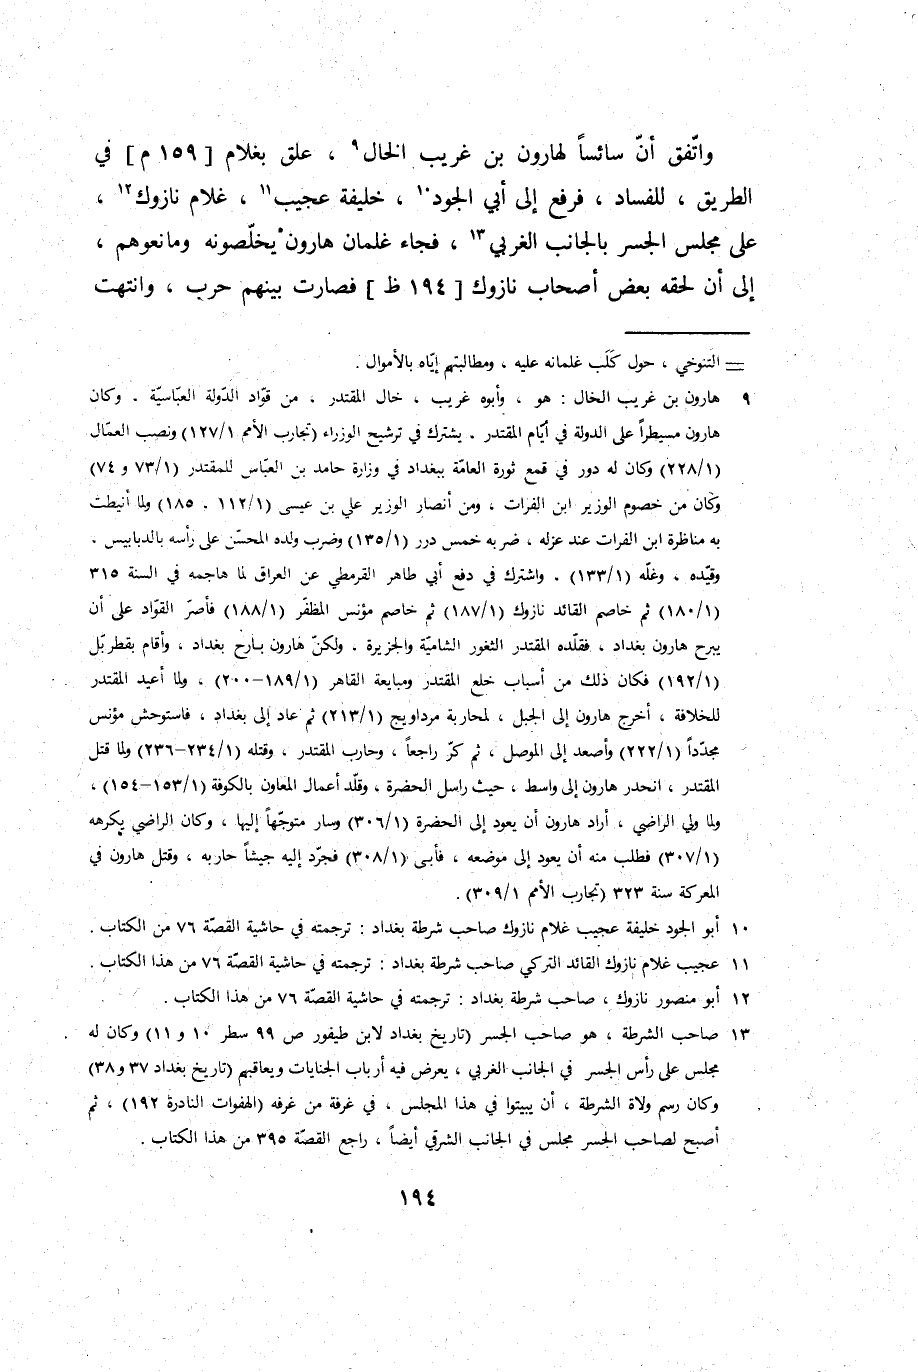 واتّفق أنّ سائساً لهارون بن غريب الخال٩ ، علق بغلام [ ١٥٩ م ] في
الطريق ، للفساد ، فرفع إلى أبي الجود١٠ ، خليفة عجيب١١ ، غلام نازوك١٢ ،
على مجلس الجسر بالجانب الغربي١٣ ، فجاء غلمان هارون يخلّصونه ومانعوهم ،
إلى أن لحقه بعض أصحاب نازوك [ ١٩٤ ظ ] فصارت بينهم حرب ، وانتهت
= التنوخي ، حول كَلَب غلمانه عليه ، ومطالبتهم إيّاه بالأموال .
٩ هارون بن غريب الخال : هو ، وأبوه غريب ، خال المقتدر ، من قوّاد الدّولة العبّاسيّة . وكان
هارون مسيطراً على الدولة في أيّام المقتدر . يشترك في ترشيح الوزراء (تجارب الأمم ١/‏١٢٧) ونصب العمّال
(١/‏٢٢٨) وكان له دور في قمع ثورة العامّة ببغداد في وزارة حامد بن العبّاس للمقتدر (١/‏٧٣ و ٧٤)
وكان من خصوم الوزير ابن الفرات ، ومن أنصار الوزير علي بن عيسى (١/‏١١٢ . ١٨٥) ولما أنيطت
به مناظرة ابن الفرات عند عزله ، ضربه خمس درر (١/‏١٣٥) وضرب ولده المحسّن على رأسه بالدبابيس .
وقيّده ، وغلّه (١/‏١٣٣) . واشترك في دفع أبي طاهر القرمطي عن العراق لما هاجمه في السنة ٣١٥
(١/‏١٨٠) ثم خاصم القائد نازوك (١/‏١٨٧) ثم خاصم مؤنس المظفّر (١/‏١٨٨) فأصرّ القوّاد على أن
يبرح هارون بغداد ، فقلّده المقتدر الثغور الشاميّة والجزيرة . ولكنّ هارون بارح بغداد ، وأقام بقطربّل
(١/‏١٩٢) فكان ذلك من أسباب خلع المقتدر ومبايعة القاهر (١/‏١٨٩–٢٠٠) ، ولما أعيد المقتدر
للخلافة ، أخرج هارون إلى الجبل ، لمحاربة مرداويج (١/‏٢١٣) ثم عاد إلى بغداد ، فاستوحش مؤنس
مجدّداً (١/‏٢٢٢) وأصعد إلى الموصل ، ثم كرّ راجعاً ، وحارب المقتدر ، وقتله (١/‏٢٣٤–٢٣٦) ولما قتل
المقتدر ، انحدر هارون إلى واسط ، حيث راسل الحضرة ، وقلّد أعمال المعاون بالكوفة (١/‏١٥٣–١٥٤) ،
ولما ولي الراضي ، أراد هارون أن يعود إلى الحضرة (١/‏٣٠٦) وسار متوجّهاً إليها ، وكان الراضي يكرهه
(١/‏٣٠٧) فطلب منه أن يعود إلى موضعه ، فأبى (١/‏٣٠٨) فجرّد إليه جيشاً حاربه ، وقتل هارون في
المعركة سنة ٣٢٣ (تجارب الأمم ١/‏٣٠٩) .
١٠ أبو الجود خليفة عجيب غلام نازوك صاحب شرطة بغداد : ترجمته في حاشية القصّة ٧٦ من الكتاب .
١١ عجيب غلام نازوك القائد التركي صاحب شرطة بغداد : ترجمته في حاشية القصّة ٧٦ من هذا الكتاب .
١٢ أبو منصور نازوك ، صاحب شرطة بغداد : ترجمته في حاشية القصّة ٧٦ من هذا الكتاب .
١٣ صاحب الشرطة ، هو صاحب الجسر (تاريخ بغداد لابن طيفور ص ٩٩ سطر ١٠ و ١١) وكان له
مجلس على رأس الجسر في الجانب الغربي ، يعرض فيه أرباب الجنايات ويعاقبهم (تاريخ بغداد ٣٧ و٣٨)
وكان رسم ولاة الشرطة ، أن يبيتوا في هذا المجلس ، في غرفة من غرفه (الهفوات النادرة ١٩٢) ، ثم
أصبح لصاحب الجسر مجلس في الجانب الشرقي أيضاً ، راجع القصّة ٣٩٥ من هذا الكتاب .
١٩٤